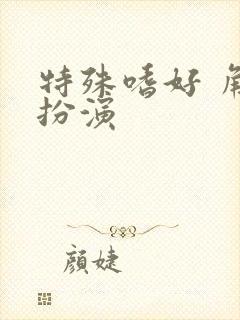 特殊嗜好 角
扮演
顏婕